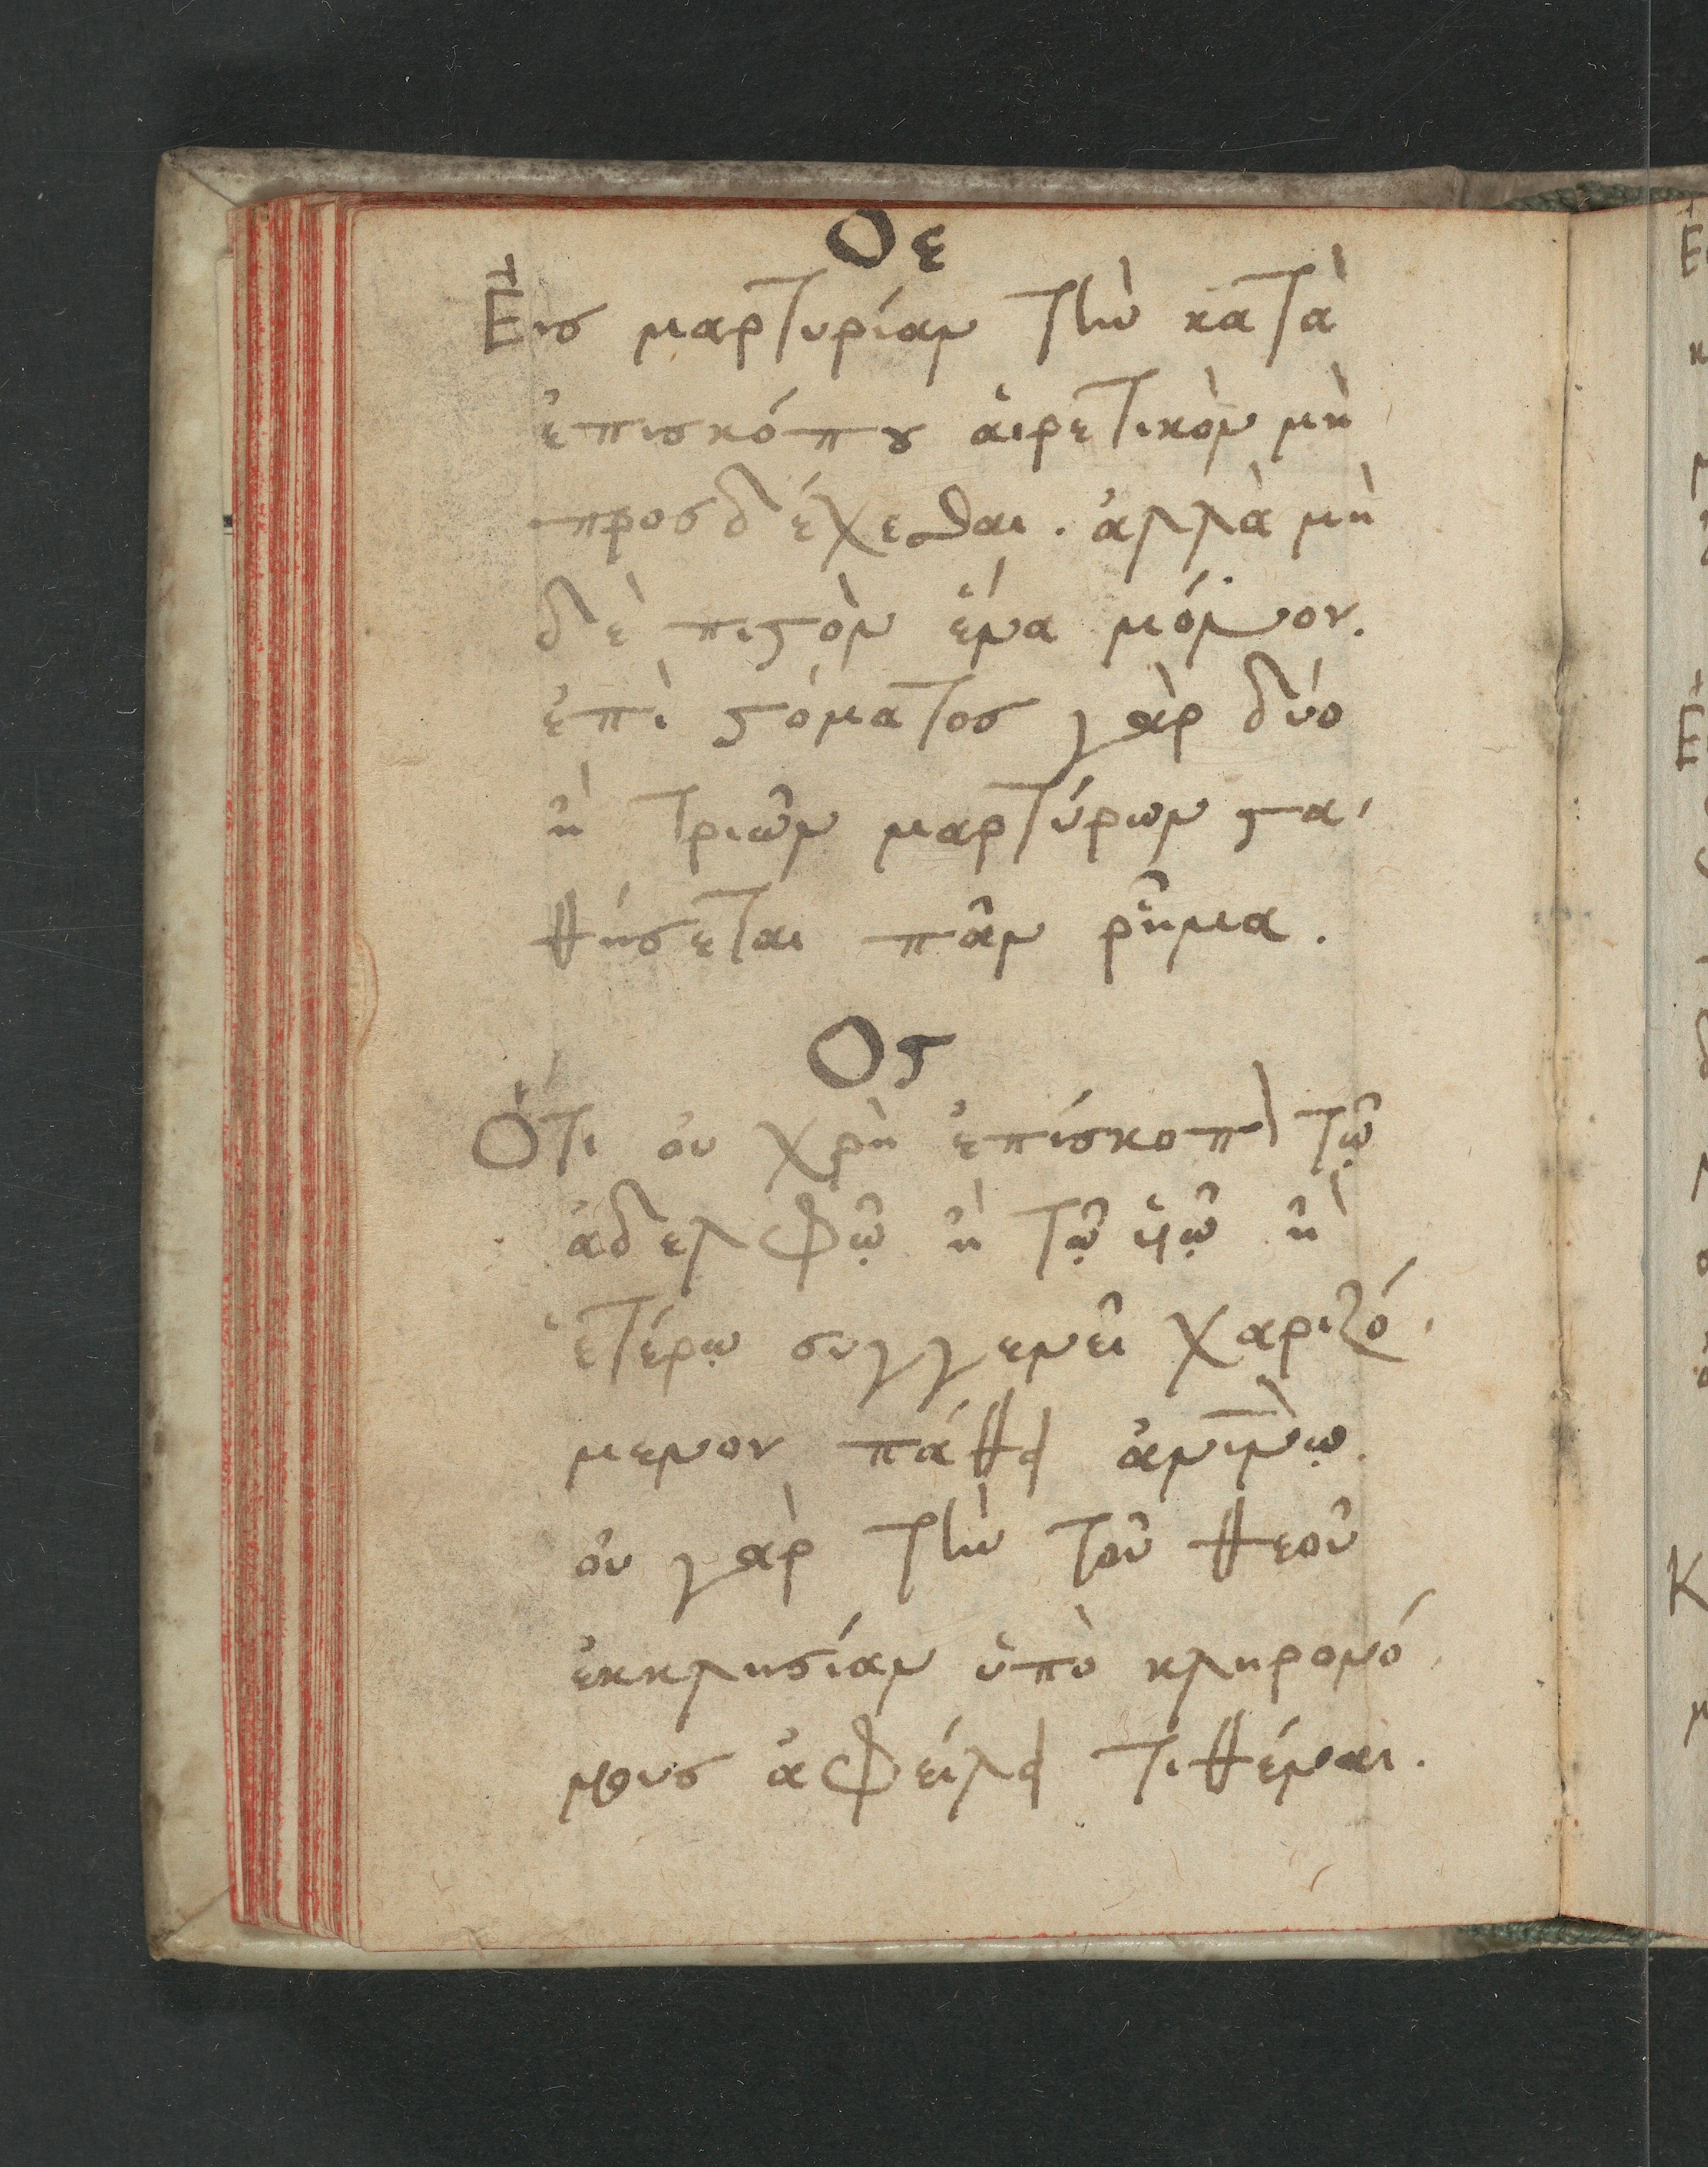 Οε
Εἰς μαρτυρίαν τὴν κατὰ
ἐπισκόπου ἁιρετικὸν μὴ
προσδέχεσθαι. ἀλλὰ μη
δὲ πιστὸν ἕνα μόνον.
ἐπὶ στόματος γὰρ δύο
ἢ τριῶν μαρτύρων στα
θήσεται πᾶν ῥῆμα.
Ος
Ὅτι ὀυ χρὴ ἐπίσκοπὸν τῷ
ἀδελφῷ ἢ τῷ ὑῷ ἢ
ἑτέρῳ συγγενεῖ χαριζό
μενον πάθει
ὀυ γὰρ τὴν τοῦ θεοῦ
ἐκκλησίαν ὑπὸ κληρονό
μους ὀφείλει τιθέναι.